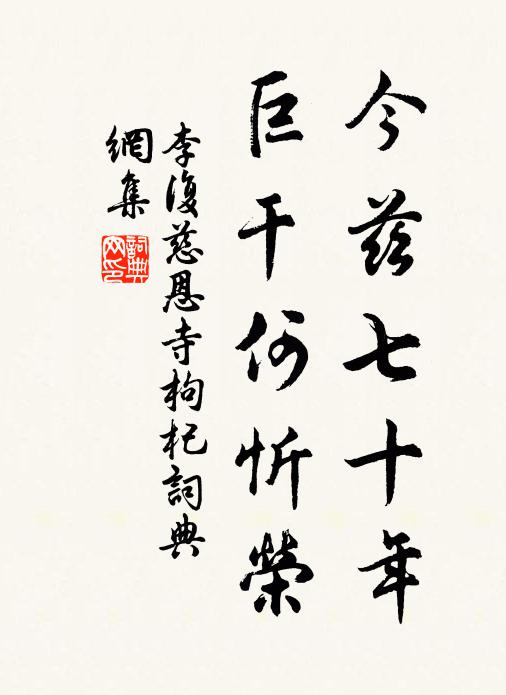 今茲七十年
巨干何忻榮
李復慈恩寺枸杞詞典
網集
詞典
网印